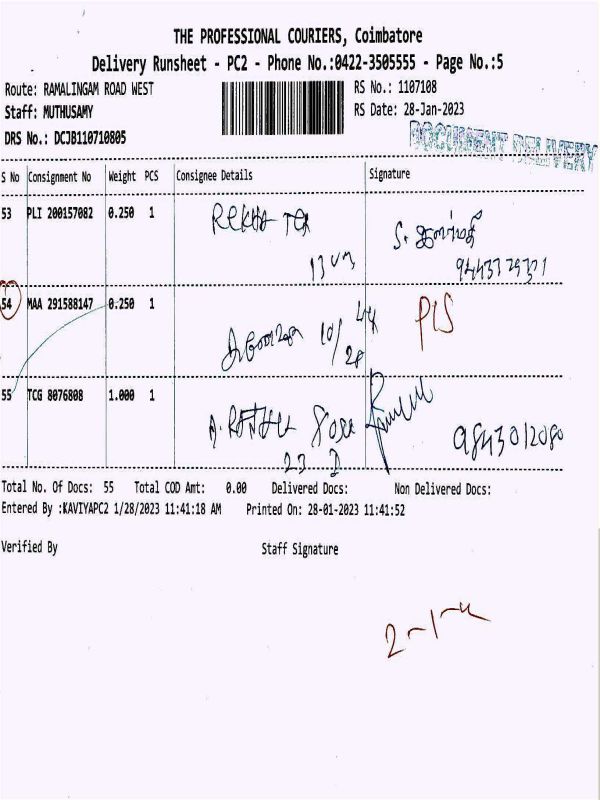 THE PROFESSIONAL COURIERS, Coimbatore
Delivery Runsheet - PC2 - Phone No.:0422-3505555 - Page No.:5
Route: RAMALINGAM ROAD WEST
RS No.: 1107108
Staff: MUTHUSAMY
RS Date: 28-Jan-2023
DRS No.: DCJB110710805
DOCUMENT DELIVERY
S No Consignment No Weight PCS Consignee Details Signature
53 PLI 200157082 0.250 1
9443329371
54 MAA 291588147 0.250 1
55 TCG 8076808 1.000 1
9843012080
Total No. Of Docs: 55 Total COD Amt: 0.00 Delivered Docs: Non Delivered Docs:
Entered By :KAVIYAPC2 1/28/2023 11:41:18 AM Printed On: 28-01-2023 11:41:52
Verified By Staff Signature